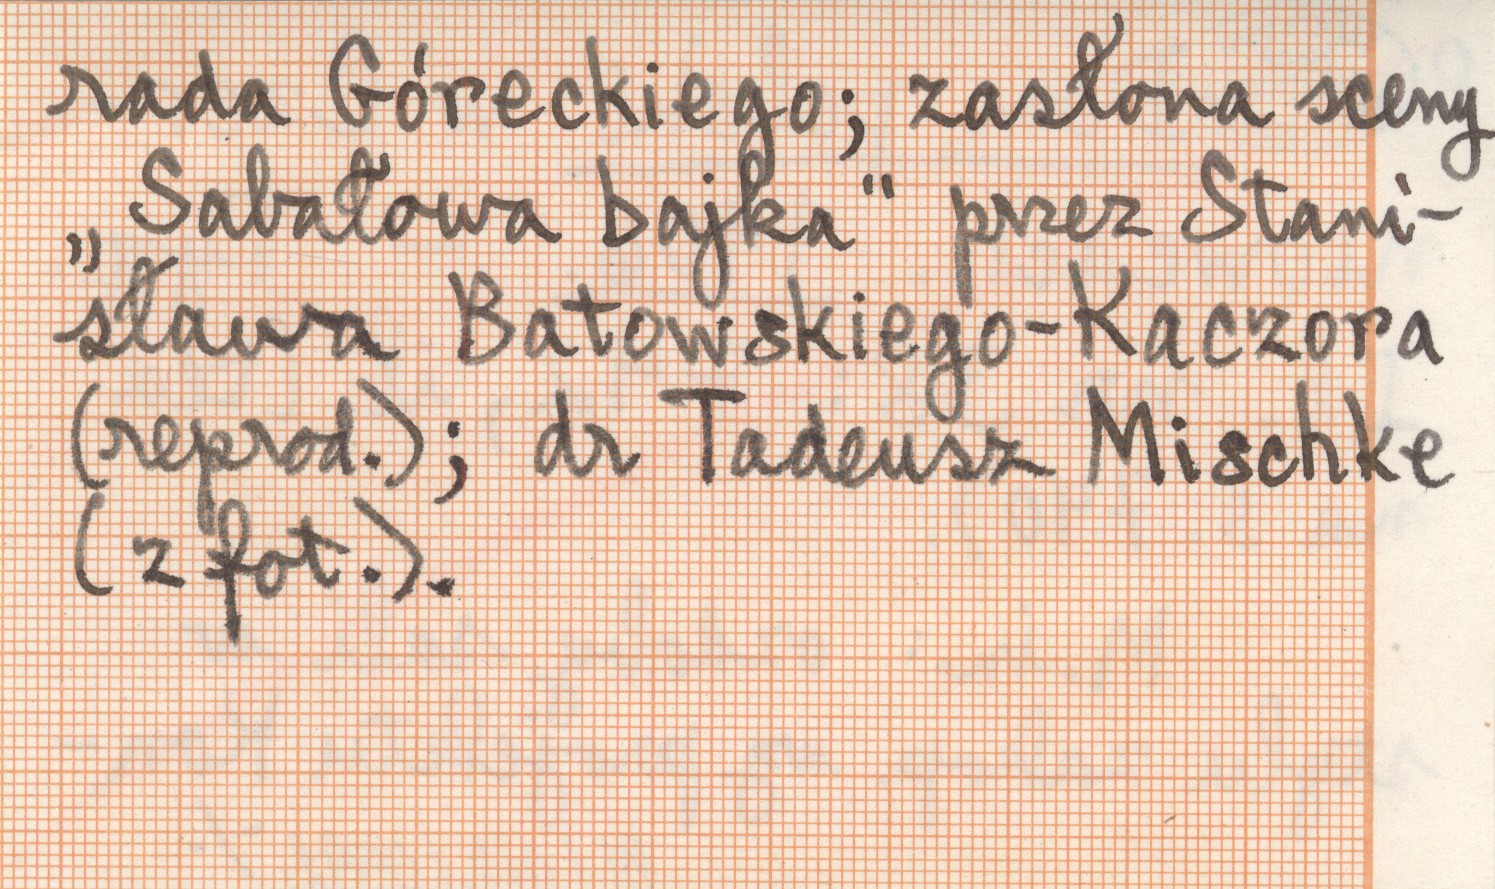 rada Góreckiego; zasłona sceny
„Sabałowa bajka" przez Stani-
sława Batowskiego-Kaczora
(reprod.); dr Tadeusz Mischke
(z fot.).